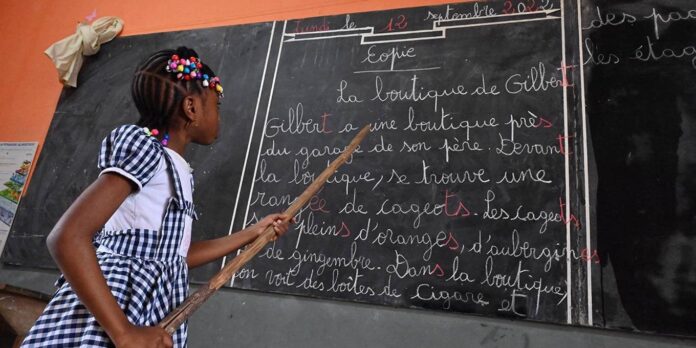 Lundi le 12 septembre 2022
Copie
La boutique de Gilbert
Gilbert a une boutique près
du garage de son père. Devant
la boutique, se trouve une
rangée de cageots. Les cageots
pleins d'oranges, d'aubergines
de gingembre. Dans la boutique,
on voit des boîtes de cigare et
des pa
les étag